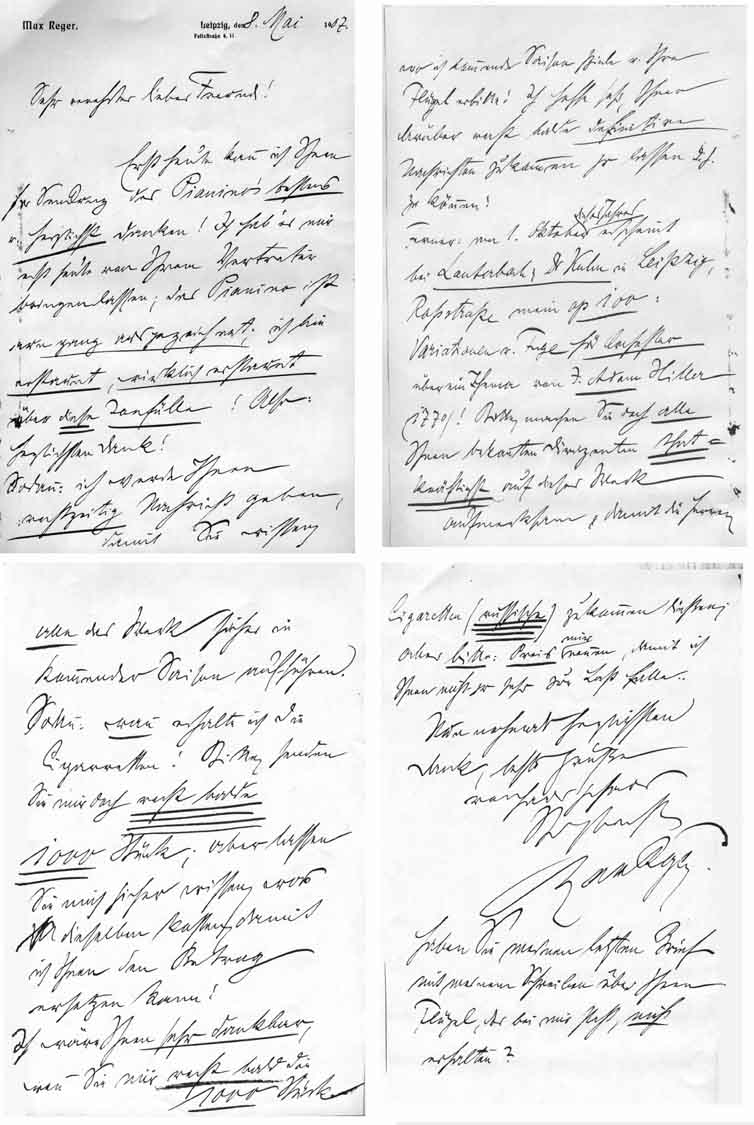 Max Reger.
Leipzig, den 8. Mai 1907.
Felixstraße 4, II
Sehr verehrter lieber Freund!
Erst heute kann ich Ihnen
für Sendung des Pianino's bestens
u. herzlichst danken! Ich hab' es mir
erst heute von Ihrem Vertreter
bringen lassen; das Pianino ist
ganz ausgezeichnet; ich bin
erstaunt, wirklich erstaunt
über diese Tonfülle! Also:
herzlichsten Dank!
Sodann: ich werde Ihnen
rechtzeitig Nachricht geben,
damit Sie wissen,
wo ich kommende Saison spiele u. Ihre
Flügel erbitte! Ich hoffe sehr, Ihnen
darüber recht balde definitive
Nachrichten zukommen zu lassen
zu können!
Ferner: am 1. Oktober dieses Jahres erscheint
bei Lauterbach & Dr Kuhn in Leipzig,
Roßstraße mein op 100:
Variationen u. Fuge für Orchester
über ein Thema von J. Adam Hiller
(1770)! Bitte, machen Sie doch alle
Ihnen bekannten Dirigenten that=
kräftigst auf dieses Werk
aufmerksam, damit die Herren
alle das Werk sicher in
kommender Saison aufführen.
Sodann: wann erhalte ich die
Cigarretten? Bitte, senden
Sie mir doch recht balde
1000 Stück; aber lassen
Sie mich sicher wissen, was
dieselben kosten, damit
ich Ihnen den Betrag
ersetzen kann!
Ich wäre Ihnen sehr dankbar,
wenn Sie mir recht bald die
1000 Stück
Cigaretten (russische) zukommen ließen;
aber bitte: Preis mir nennen, damit ich
Ihnen nicht so sehr zur Last falle.
Nun nochmals herzlichsten
Dank, beste Grüße
von Ihrem
ergebensten
Max Reger.
Haben Sie meinen letzten Brief
mit meinem Schreiben über Ihren
Flügel, der bei mir steht, nicht
erhalten?